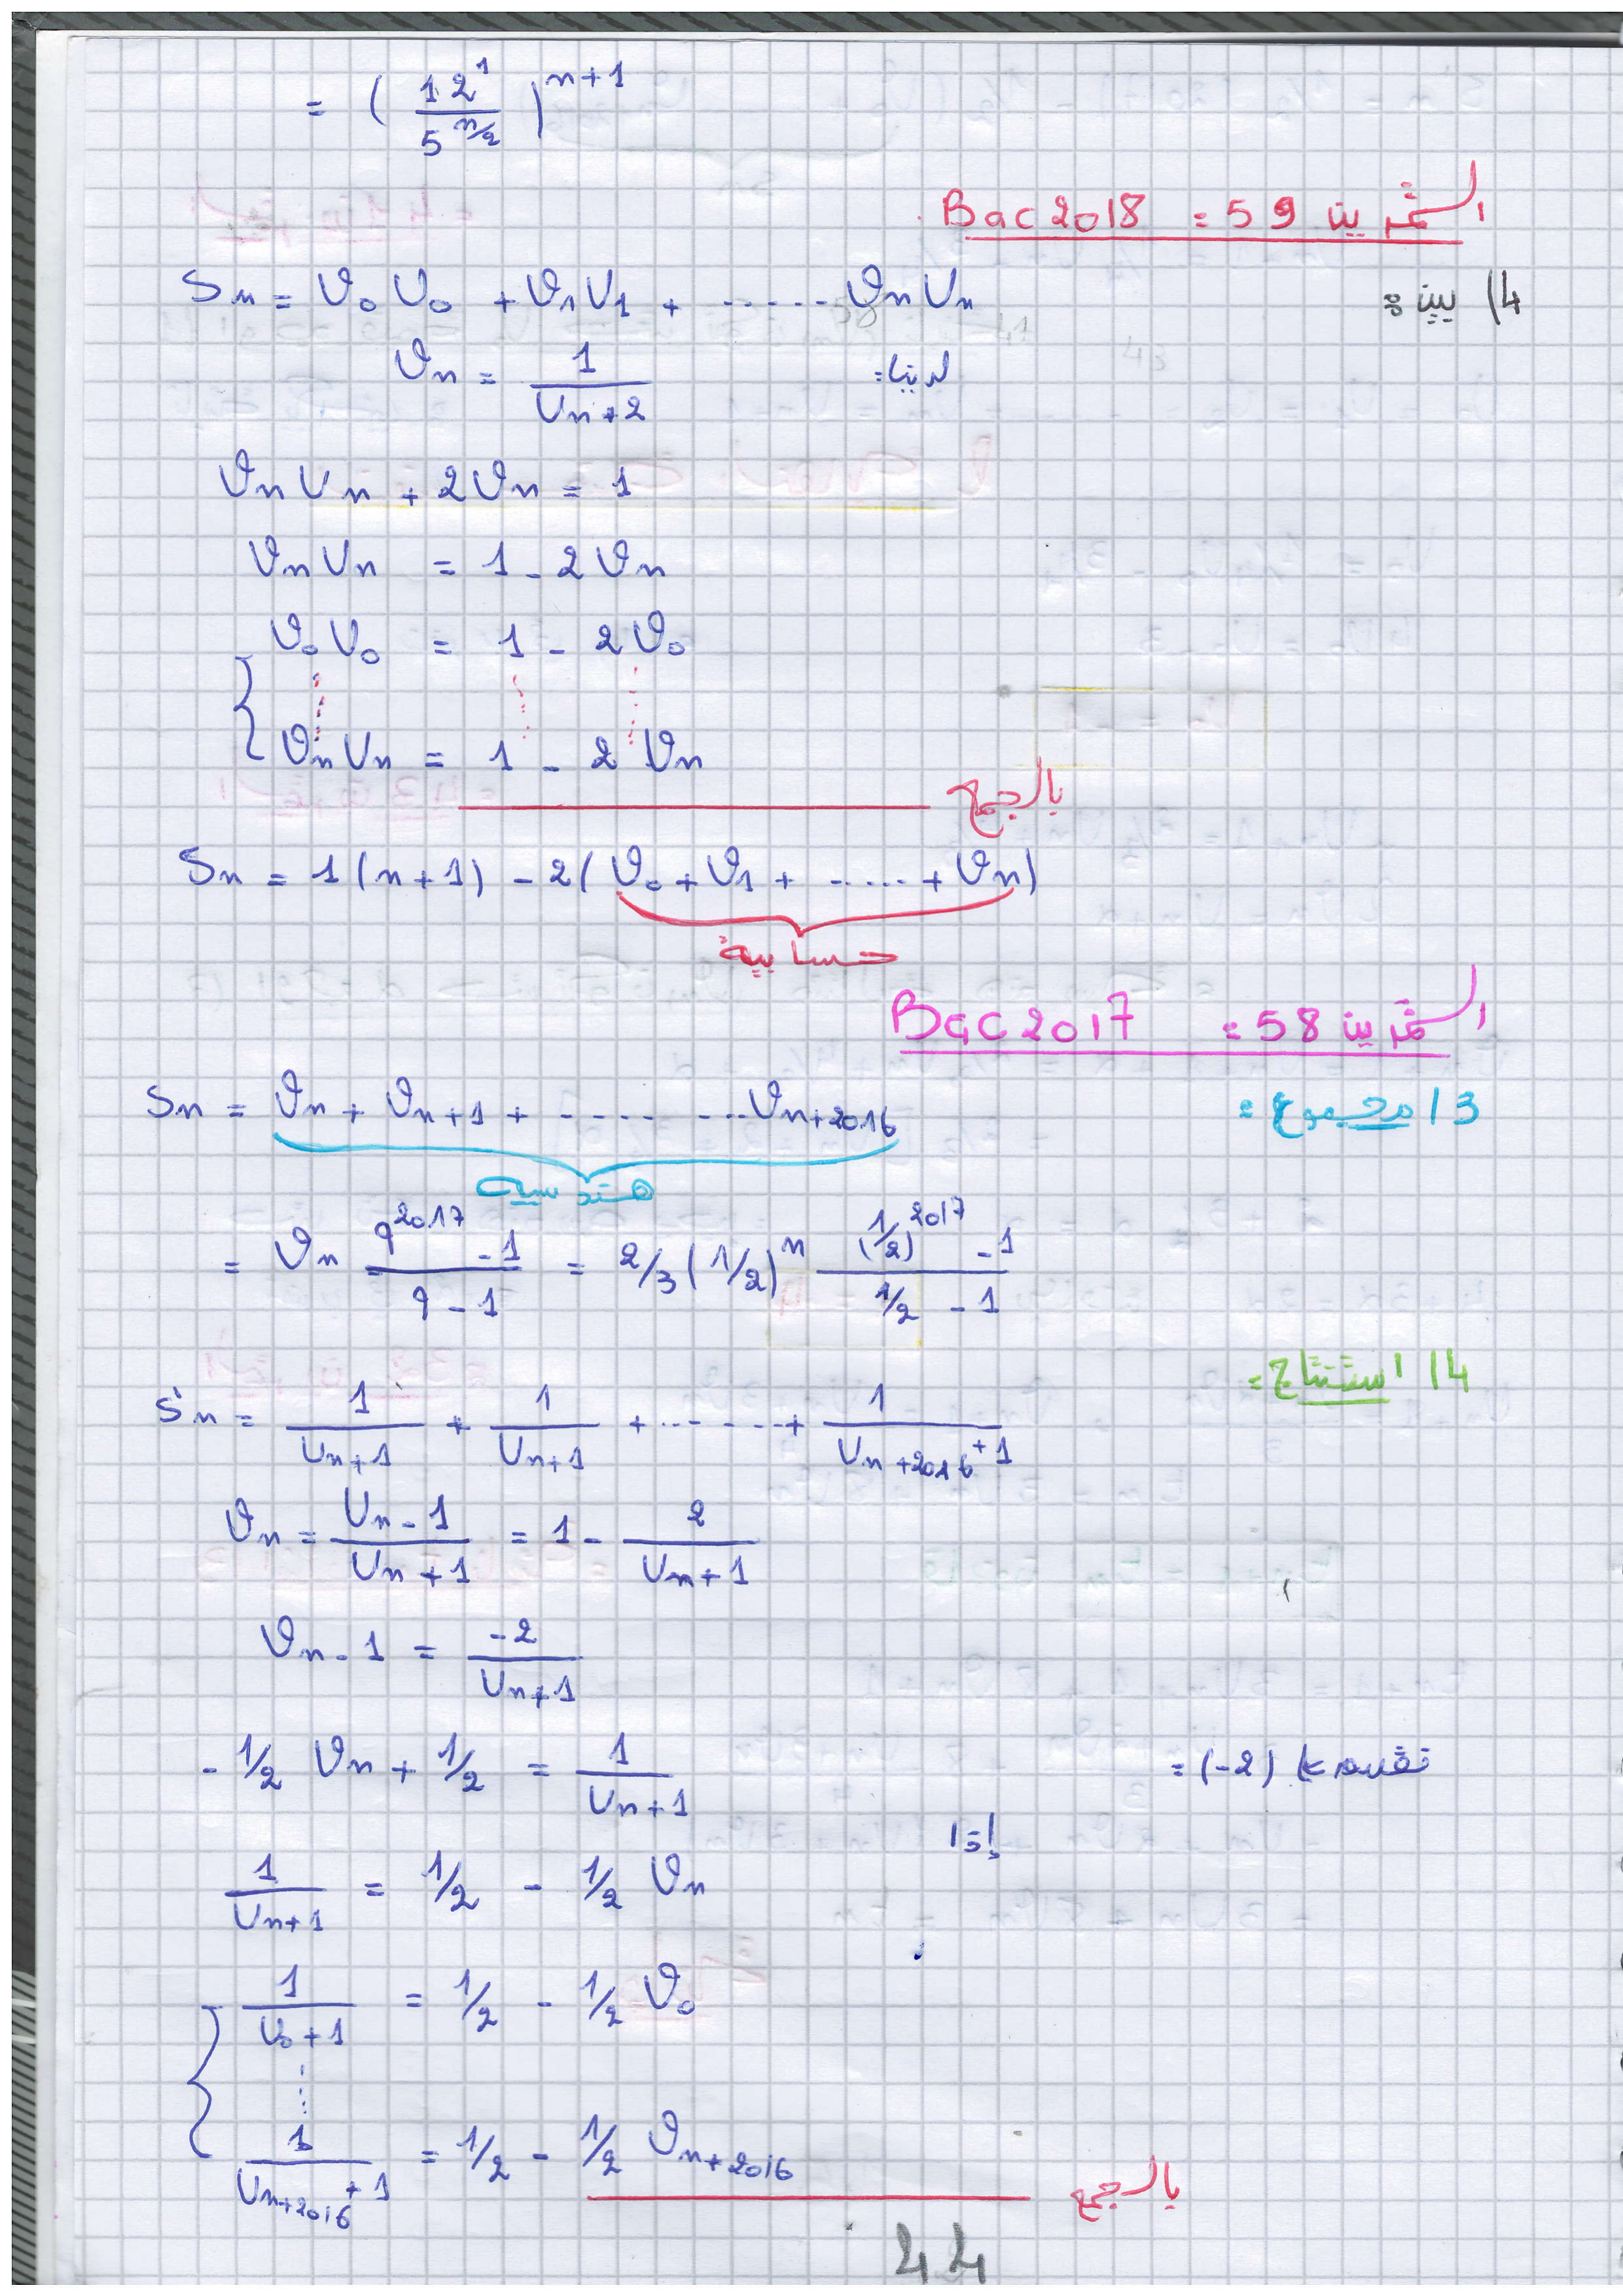 = ( 12¹ / 5^(n/2) )^(n+1)
التمرين 59 : Bac 2018
4) يبين :
Sn = V₀U₀ + V₁U₁ + ...... VnUn
لدينا: Vn = 1 / (Un + 2)
VnUn + 2Vn = 1
VnUn = 1 - 2Vn
V₀U₀ = 1 - 2V₀
VnUn = 1 - 2Vn
بالجمع
Sn = 1(n+1) - 2(V₀ + V₁ + ...... + Vn)
حسابية
التمرين 58 : Bac 2017
3) مجموع :
Sn = Vn + Vn+1 + ....... Vn+2016
هندسية
= Vn (q^2017 - 1)/(q - 1) = 2/3 (1/2)^n ((1/2)^2017 - 1)/(1/2 - 1)
4) استنتاج :
S'n = 1/(Un+1) + 1/(Un+1) + ....... + 1/(Un+2016 + 1)
Vn = (Un - 1)/(Un + 1) = 1 - 2/(Un + 1)
Vn - 1 = -2/(Un + 1)
نقسم على (-2) :
- 1/2 Vn + 1/2 = 1/(Un + 1)
إذا
1/(Un+1) = 1/2 - 1/2 Vn
1/(U₀+1) = 1/2 - 1/2 V₀
1/(Un+2016 + 1) = 1/2 - 1/2 Vn+2016
بالجمع
44